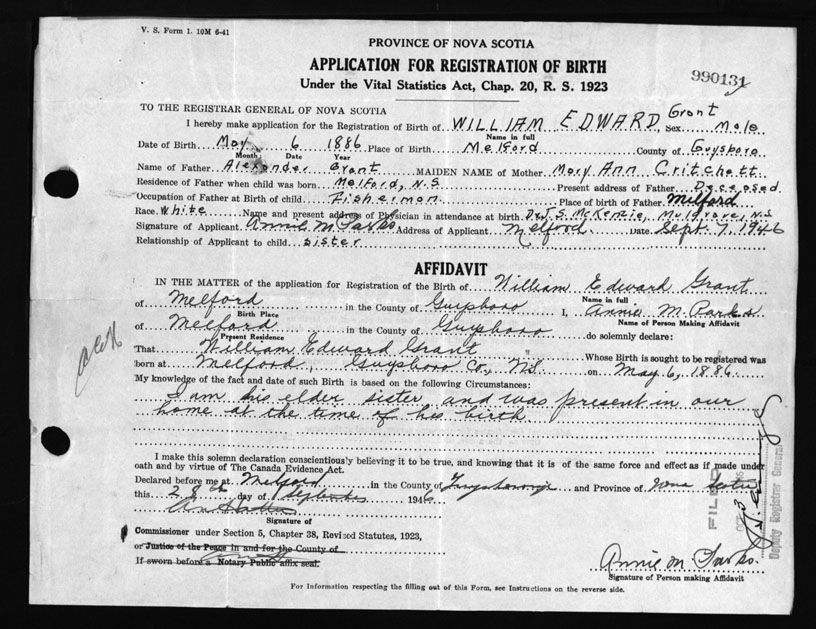 V. S. Form 1. 10M 6-41
PROVINCE OF NOVA SCOTIA
APPLICATION FOR REGISTRATION OF BIRTH
990131
Under the Vital Statistics Act, Chap. 20, R. S. 1923
TO THE REGISTRAR GENERAL OF NOVA SCOTIA
I hereby make application for the Registration of Birth of WILLIAM EDWARD Grant Sex Male
Name in full
Date of Birth May 6 1886 Place of Birth Melford County of Guysboro
Month Date Year
Name of Father Alexander Grant MAIDEN NAME of Mother Mary Ann Critchett
Residence of Father when child was born Melford, N.S Present address of Father Deceased
Occupation of Father at Birth of child Fisherman Place of birth of Father Milford
Race White Name and present address of Physician in attendance at birth Dr. J.S. McKenzie, Muldgrave, N.S
Signature of Applicant Annie M Parks Address of Applicant Melford. Date Sept. 7, 1946
Relationship of Applicant to child sister
AFFIDAVIT
IN THE MATTER of the application for Registration of the Birth of William Edward Grant
Name in full
of Melford in the County of Guysboro I, Annie M. Parks
Birth Place Name of Person Making Affidavit
of Melford in the County of Guysboro do solemnly declare:
Present Residence
That William Edward Grant Whose Birth is sought to be registered was
born at Melford, Guysboro Co., N.S. on May 6, 1886
My knowledge of the fact and date of such Birth is based on the following Circumstances:
I am his elder sister and was present in our
home at the time of his birth
I make this solemn declaration conscientiously believing it to be true, and knowing that it is of the same force and effect as if made under
oath and by virtue of The Canada Evidence Act.
Declared before me at Melford in the County of and Province of Nova Scotia
this 28th day of September 1946
Signature of
Commissioner under Section 5, Chapter 38, Revised Statutes, 1923,
or Justice of the Peace in and for the County of
If sworn before a Notary Public affix seal.
Annie M Parks.
Signature of Person making Affidavit
For Information respecting the filling out of this Form, see Instructions on the reverse side.
FILED
Deputy Registrar General